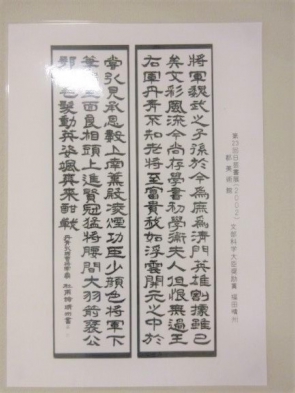 將軍魏武之子孫於今為庶為清門英雄割據雖已
矣文彩風流今尚存學書初學衛夫人但恨無過王
右軍丹青不知老將至富貴我如浮雲開元之中於
常引見承恩數上南薰殿凌煙功臣少顏色將軍下
筆開生面良相頭上進賢冠猛將腰間大羽箭褒公
鄂公毛髮動英姿颯爽來酣戰 杜甫詩 晴州書
(2002) 文部科学大臣奨励賞 福田晴州
都美術館